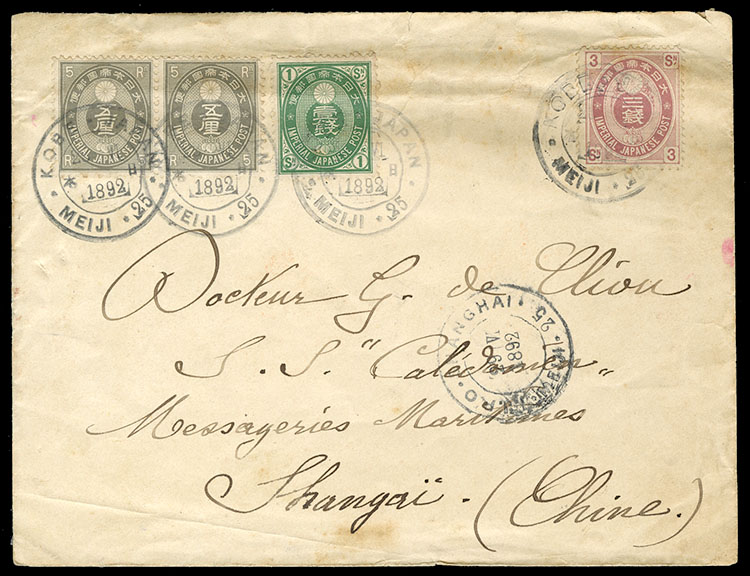 5 R
大日本帝國郵便
五厘
IMPERIAL JAPANESE POST
R 5
5 R
大日本帝國郵便
五厘
IMPERIAL JAPANESE POST
R 5
1 Sn
大日本帝國郵便
壹錢
IMPERIAL JAPANESE POST
Sn 1
3 Sn
大日本帝國郵便
三錢
IMPERIAL JAPANESE POST
Sn 3
KOBE JAPAN
1892
MEIJI 25
JAPAN
1892
MEIJI 25
JAPAN
1892
MEIJI 25
KOBE
MEIJI 25
Docteur G. de
SHANGHAI
1892
MEIJI 25
S. S. "Calédonien"
Messageries Maritimes
Shangaï. (Chine.)